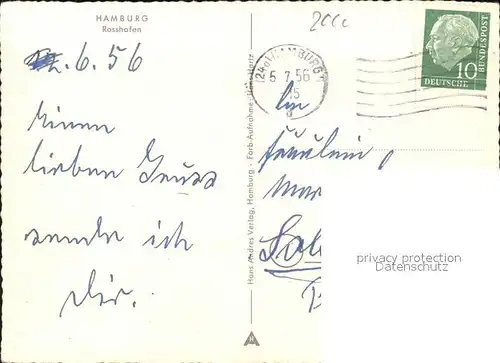 HAMBURG
Rosshafen
.6.56
Einen
lieben Gruss
sende ich
Dir.
Hans Andres Verlag, Hamburg · Farb-Aufnahme:
(24a) HAMBURG
6.7.56
-15
An
Fräulein
Mar
DEUTSCHE
BUNDESPOST
10
privacy protection
Datenschutz